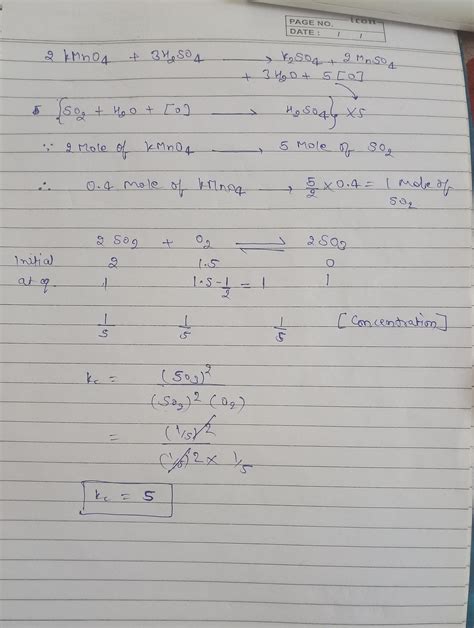 PAGE NO.
DATE : / /
2 KMnO4 + 3H2SO4 → K2SO4 + 2 MnSO4
+ 3H2O + 5 [O]
5 {SO2 + H2O + [O] → H2SO4} x5
∵ 2 Mole of KMnO4 → 5 Mole of SO2
∴ 0.4 mole of KMnO4 → 5/2 x 0.4 = 1 Mole of
SO2
2 SO2 + O2 ⇌ 2SO3
Initial 2 1.5 0
at eq. 1 1.5 - 1/2 = 1 1
1/5 1/5 1/5 [Concentration]
Kc = (SO3)^2
(SO2)^2 (O2)
= (1/5)^2
(1/5)^2 x 1/5
Kc = 5